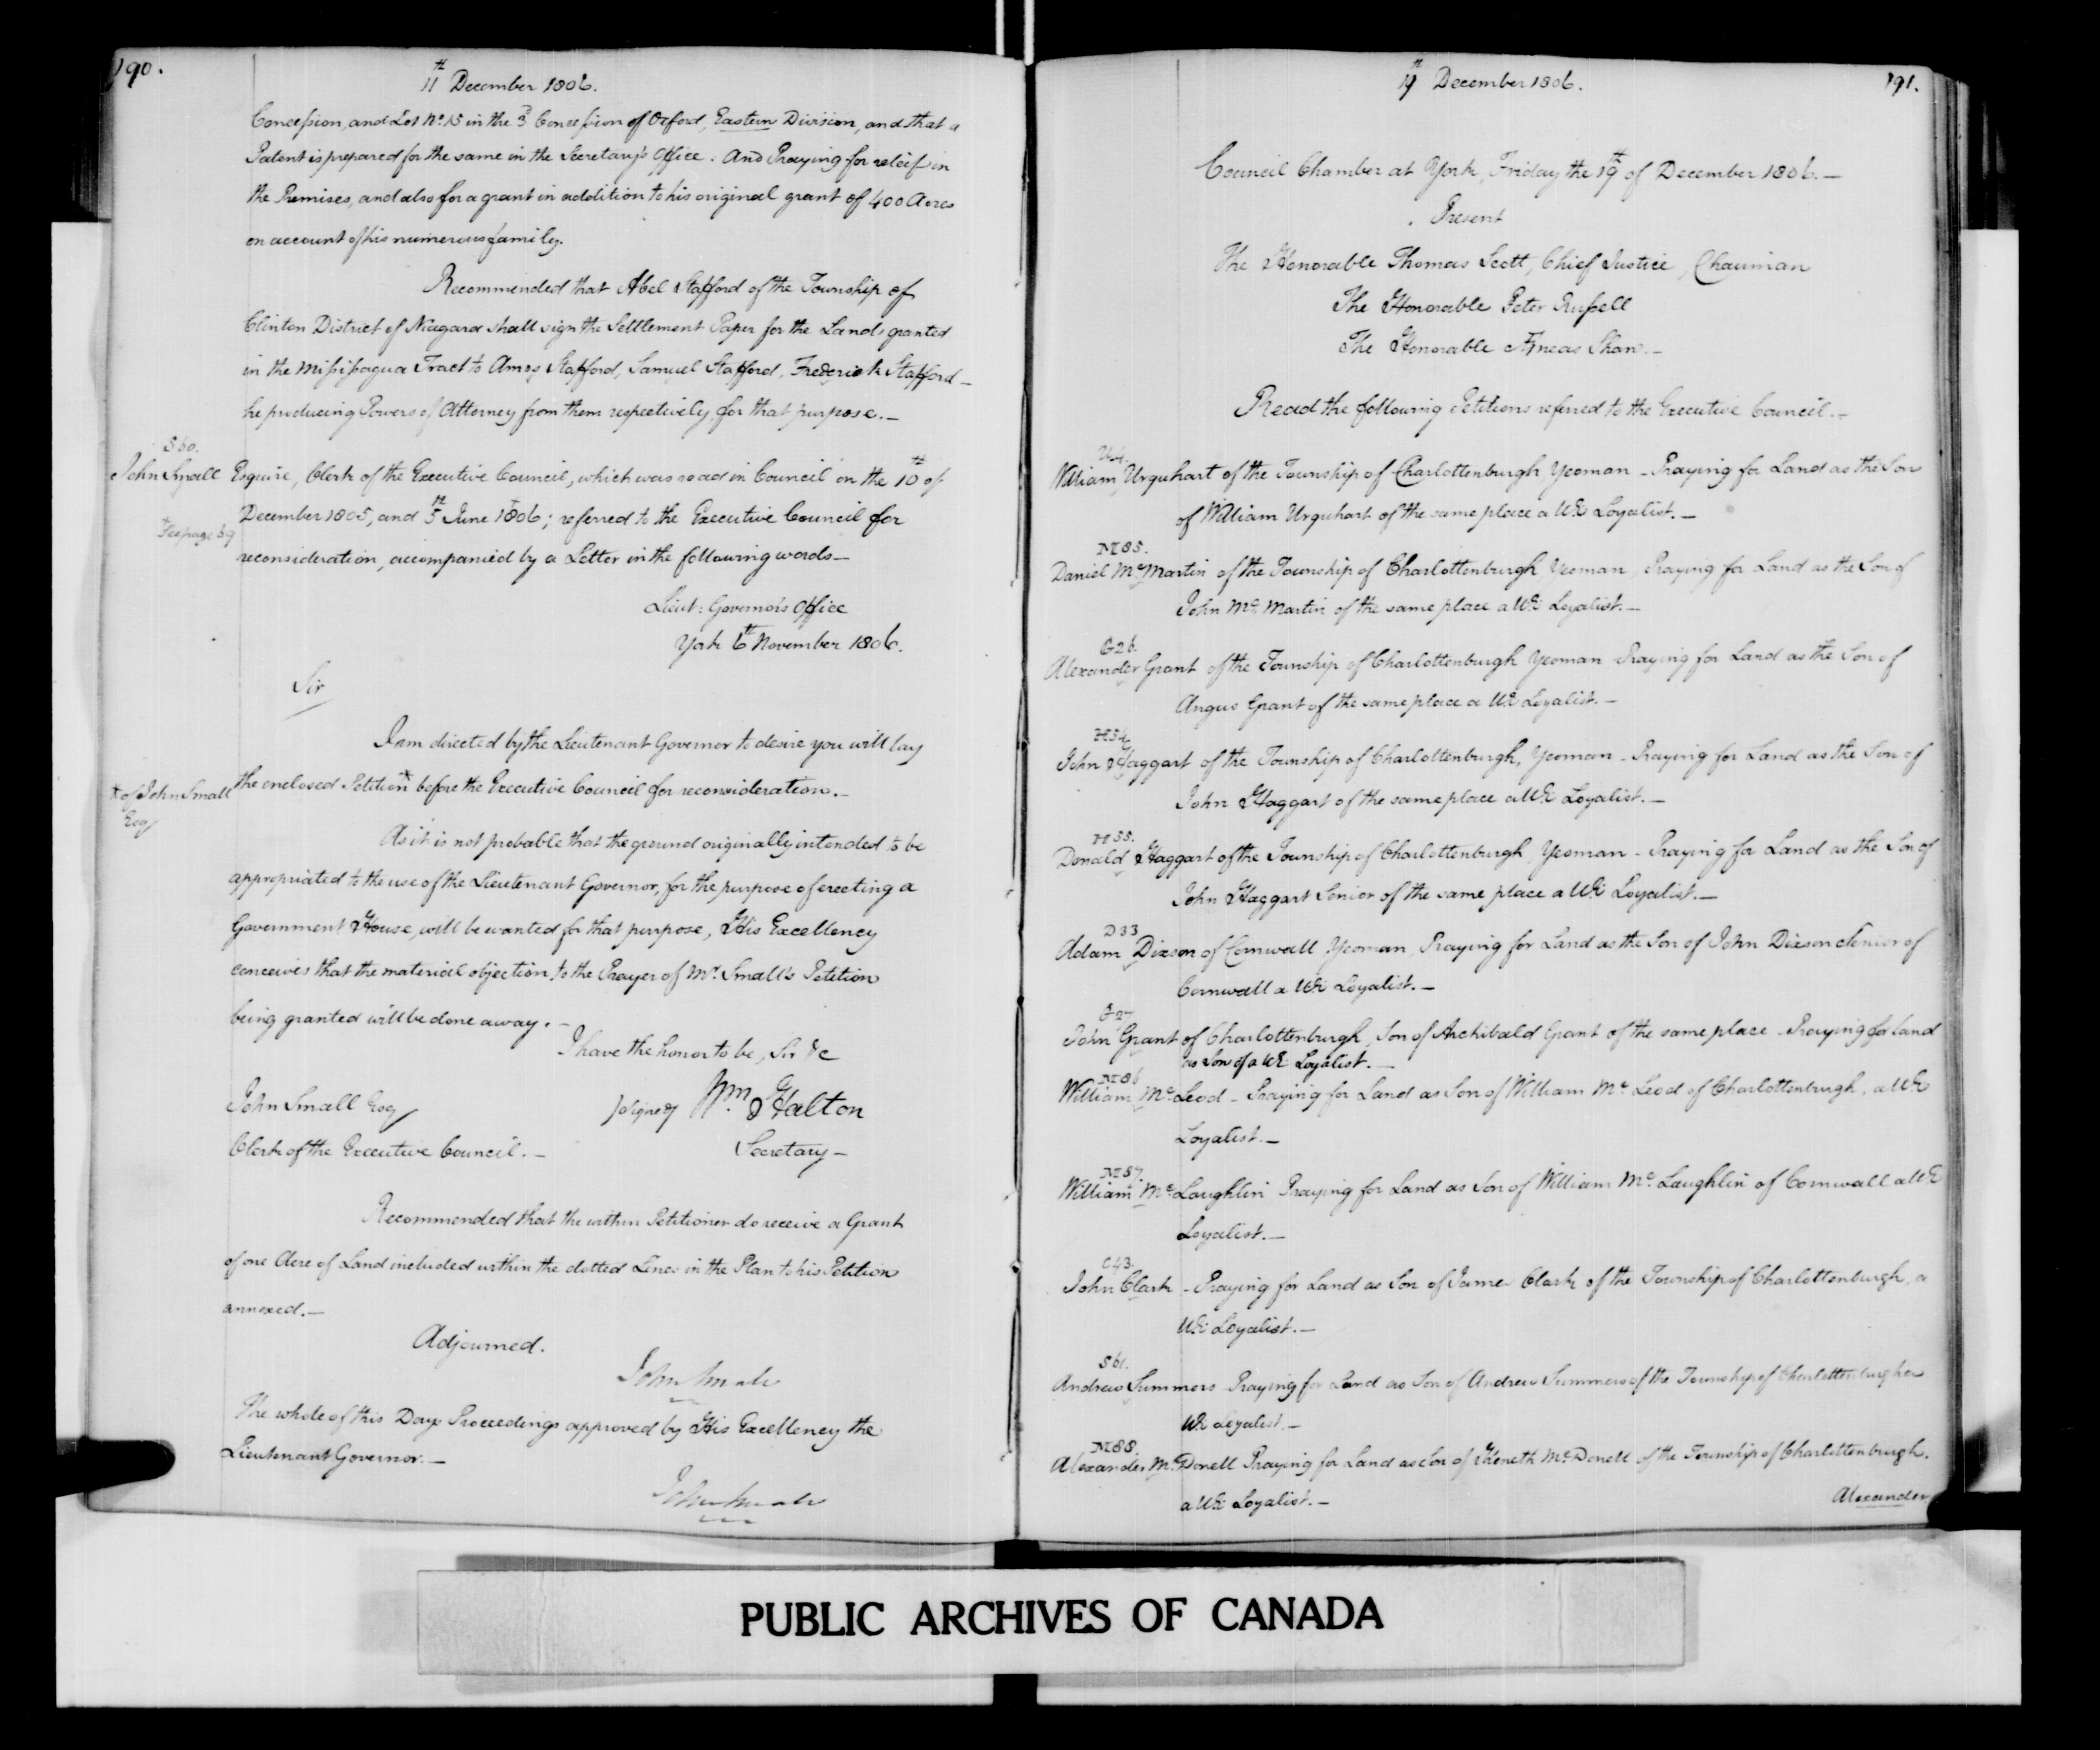 190.
11th December 1806.
Concession, and Lot No. 15 in the 3d Concession of Oxford, Eastern Division, and that a
Patent is prepared for the same in the Secretary's Office: And Praying for releif in
the Premises, and also for a grant in addition to his original grant of 400 Acres
on account of his numerous family.
Recommended that Abel Stafford of the Township of
Clinton District of Niagara shall sign the Settlement Paper for the Lands granted
in the Missisagua Tract to Amos Stafford, Samuel Stafford, Frederick Stafford –
he producing Powers of Attorney from them respectively, for that purpose. –
S 60.
John Small Esquire, Clerk of the Executive Council, which was read in Council on the 10th of
December 1805, and 5th June 1806; referred to the Executive Council for
See page 69
reconsideration, accompanied by a Letter in the following words –
Lieut: Governor's Office
York 6th November 1806.
Sir
I am directed by the Lieutenant Governor to desire you will lay
the enclosed Petition * before the Executive Council for reconsideration. –
* of John Small
Esq
As it is not probable that the ground originally intended to be
appropriated to the use of the Lieutenant Governor, for the purpose of erecting a
Government House, will be wanted for that purpose, His Excellency
conceives that the material objection to the Prayer of Mr. Small's Petition
being granted will be done away. –
I have the honor to be, Sir &c
John Small Esq
signed Wm. Halton
Clerk of the Executive Council. –
Secretary –
Recommended that the within Petitioner do receive a Grant
of one Acre of Land included within the dotted Lines in the Plan to his Petition
annexed. –
Adjourned.
John Small
The whole of this Days Proceedings approved by His Excellency the
Lieutenant Governor. –
John Small
19th December 1806.
191.
Council Chamber at York, Friday the 19th of December 1806. –
Present
The Honorable Thomas Scott, Chief Justice, Chairman
The Honorable Peter Russell
The Honorable Æneas Shaw. –
Read the following Petitions referred to the Executive Council. –
William Urquhart of the Township of Charlottenburgh Yeoman – Praying for Land as the Son
of William Urquhart of the same place a UE Loyalist. –
M 85.
Daniel Mc Martin of the Township of Charlottenburgh Yeoman, Praying for Land as the Son of
John Mc Martin of the same place a UE Loyalist. –
G 26.
Alexander Grant of the Township of Charlottenburgh Yeoman Praying for Land as the Son of
Angus Grant of the same place a UE Loyalist. –
H 54
John Haggart of the Township of Charlottenburgh, Yeoman – Praying for Land as the Son of
John Haggart of the same place a UE Loyalist. –
H 55.
Donald Haggart of the Township of Charlottenburgh, Yeoman – Praying for Land as the Son of
John Haggart Senior of the same place a UE Loyalist. –
D 33
Adam Dixson of Cornwall Yeoman, Praying for Land as the Son of John Dixson Senior of
Cornwall a UE Loyalist. –
G 27
John Grant of Charlottenburgh, Son of Archibald Grant of the same place – Praying for land
as Son of a UE Loyalist. –
M 86
William Mc Leod – Praying for Land as Son of William Mc Leod of Charlottenburgh, a UE
Loyalist. –
M 87.
William Mc Laughlin Praying for Land as Son of William Mc Laughlin of Cornwall a UE
Loyalist. –
C 43.
John Clark – Praying for Land as Son of James Clark of the Township of Charlottenburgh, a
UE Loyalist. –
S 61.
Andrew Summers Praying for Land as Son of Andrew Summers of the Township of Charlottenburgh a
UE Loyalist. –
M 88.
Alexander Mc Donell Praying for Land as Son of Keneth Mc Donell of the Township of Charlottenburgh.
a UE Loyalist. –
Alexander
PUBLIC ARCHIVES OF CANADA